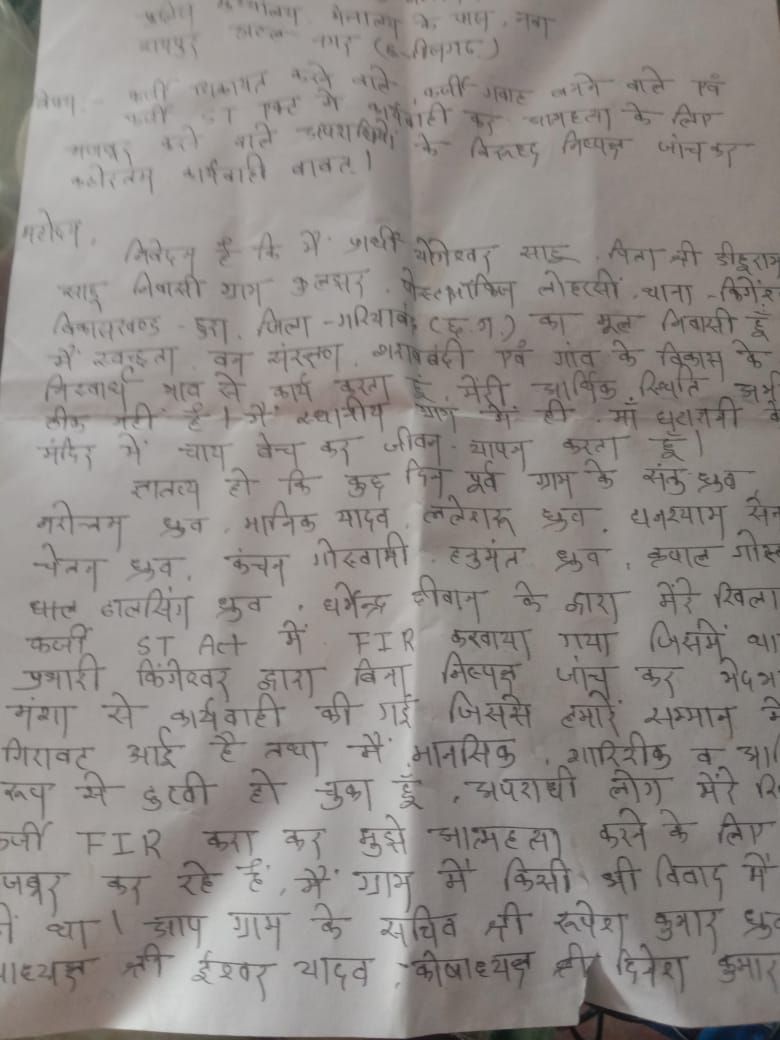 कार्यालय, मंत्रालय के पास, नवा
रायपुर अटल नगर (छत्तीसगढ़)
विषय - फर्जी शिकायत करने वाले, फर्जी गवाह बनने वाले एवं
फर्जी ST एक्ट में कार्यवाही कर आत्महत्या के लिए
मजबूर करने वाले अपराधियों के विरूध्द निष्पक्ष जांच कर
कठोरतम कार्यवाही बाबत्।
महोदय,
निवेदन है कि मैं प्रार्थी योगेश्वर साहू, पिता श्री डीहूराम
साहू निवासी ग्राम कुलझर, पोस्टऑफिस लोहरसी, थाना - फिंगेश्
विकासखण्ड - छुरा, जिला - गरियाबंद (छ.ग.) का मूल निवासी हूँ
मैं स्वच्छता, वन संरक्षण, शराबबंदी एवं गांव के विकास के
निस्वार्थ भाव से कार्य करता हूँ, मेरी आर्थिक स्थिति अभी
ठीक नहीं है। मैं स्थानीय ग्राम में ही, माँ घटारानी
मंदिर में चाय बेच कर जीवन - यापन करता हूँ।
ज्ञातव्य हो कि कुछ दिन पूर्व ग्राम के संतु ध्रुव
नरोत्तम ध्रुव, मानिक यादव, ललेशरू ध्रुव, घनश्याम सेन
चेतन ध्रुव, कंचन गोस्वामी, हनुमंत ध्रुव, कृपाल गोस्
ढालसिंग ध्रुव, धर्मेन्द्र दीवान के द्वारा मेरे खिला
फर्जी ST Act में FIR करवाया गया जिसमें था
प्रभारी फिंगेश्वर द्वारा बिना निष्पक्ष जांच कर भेदभा
मंशा से कार्यवाही की गई जिससे हमारे सम्मान में
गिरावट आई है तथा मैं मानसिक, शारिरीक व आ
रूप से दुखी हो चुका हूँ, अपराधी लोग मेरे खि
फर्जी FIR करा कर मुझे आत्महत्या करने के लिए
जबूर कर रहे हैं, मैं ग्राम में किसी भी विवाद में
था। आप ग्राम के सचिव श्री रूपेश कुमार ध्रुव
पाध्यक्ष श्री ईश्वर यादव, कोषाध्यक्ष श्री दिनेश कुमार